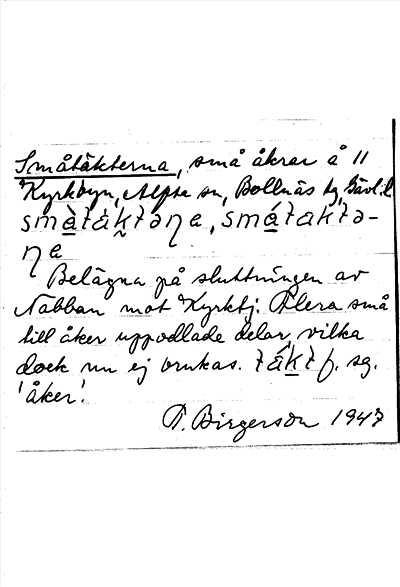 Småtäkterna, små åkrar å 11
Kyrkbyn, Alfta sn, Bollnäs tg, Gävl. l
smàtáktəŋa, smátaktə-
ŋa
Belägna på sluttningen av
Nabban mot Kyrktj. Flera små
till åker uppodlade delar, vilka
dock nu ej brukas. tákt f. sg.
'åker'.
P. Birgerson 1947